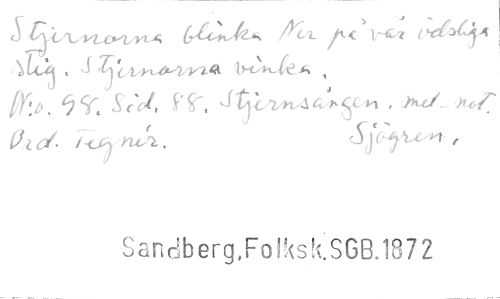 Stjernorna blinka Ner på vår ödsliga
stig. Stjernorna vinka.
N:o. 98. Sid. 88. Stjernsången. mel-not.
Ord. Tegnér. Sjögren.
Sandberg,Folksk.SGB.1872